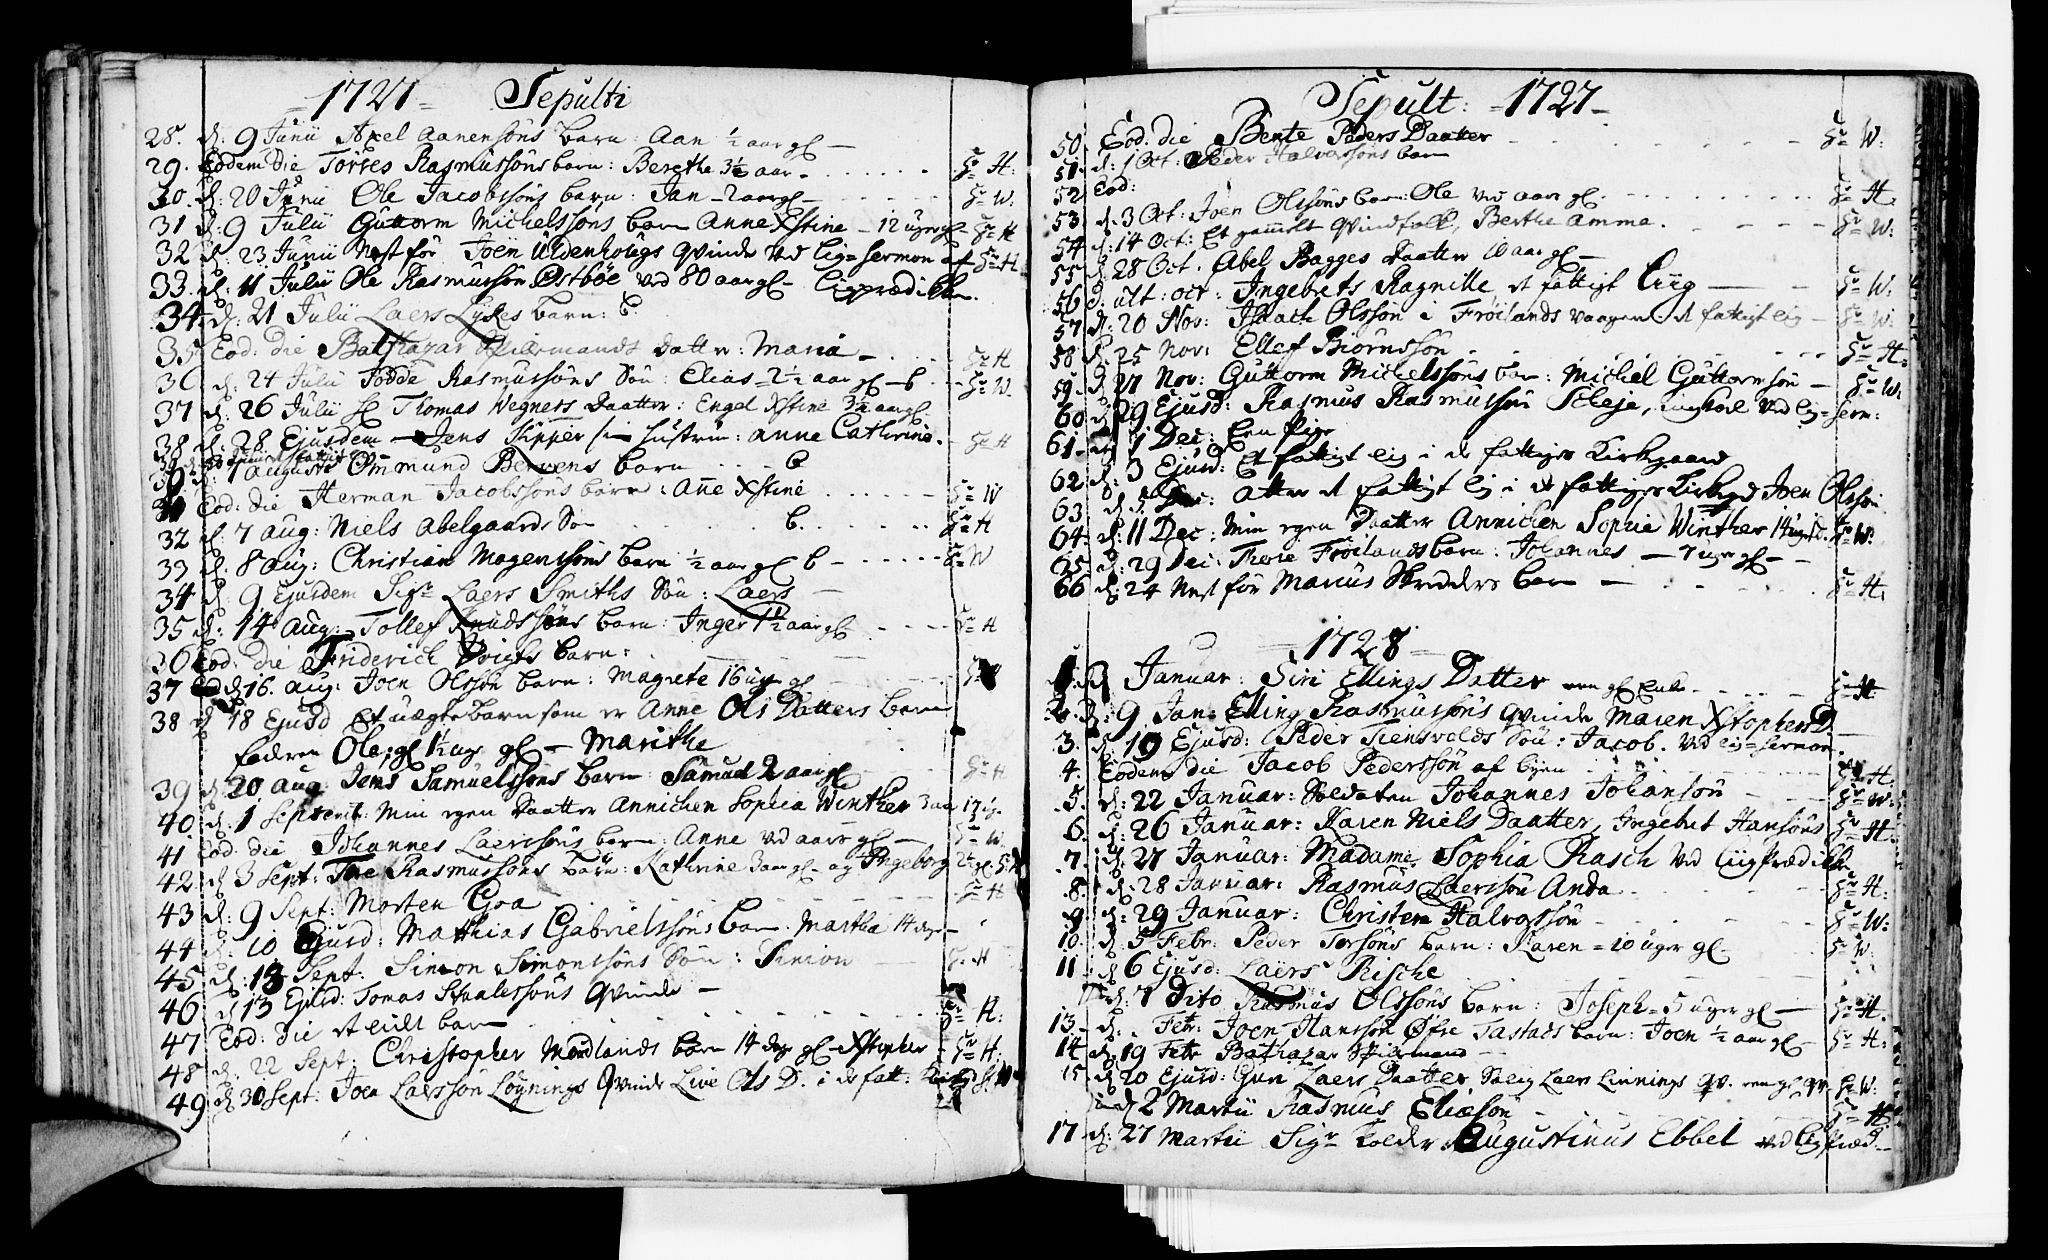 =1727= Sepulti
28. d: 9 Junii Axel Aanensøns barn: Aan ½ aar gl —
29. Eodem Die Torres Rasmussøns barn: Berethe 3½ aar. H:
30. d: 20 Junii Ole Jacobsøns barn: Jan - 2 aar gl — W:
31 d: 9 Julii Guttorm Michelssøns barn Anne Xstine — 12 uger gl H
32 d: 23 Junii Nest før Joen Uldenhougs Qvinde ved Lig=sermon af H
33. d: 11 Julii Ole Rasmussøn Østbøe ved 80 aar gl — Ligprædiken.
34. d: 21 Julii Laers Lykes barn: C
35 Eod: die Balthazar Spillemands Datter: Maria — H
36. d: 24 Julii Todde Rasmussøns Søn: Elias = 2½ aar gl — b W.
37 d: 26 Julii Thomas Wegners Daatter: Engel Xstine 3½ aar gl.
38 d: 28 Ejusdem — Jens Skipper sin Hustru: Anne Cathrine. H
30 d: 1 Augusti Ommund Bervens barn C
31 Eod: die Herman Jacobssøns barn: Añe Xstine W
32 d: 7 Aug: Niels Abelgaards Søn b. H
33 d: 8 Aug: Christian Mogenssøns barn ½ aar gl b — W
34 d: 9 Ejusdem Sigr Laers Smiths Søn: Laers —
35 d: 14 Aug: Tollef Knudssøns barn: Inger 1½ aar gl H
36 Eod: die Friderich Voigts barn:
37 d 16. Aug: Joen Olssøn barn: Magrete 16 ug gl
38 d 18 Ejusd Et uægte barn som er Anne Ols Datters barn
fadren Ole; gl 1½ uge gl — Marithe
39 d 20 Aug: Jens Samuelssøns barn: Samuel 2 aar gl H
40 d: 1 Septemb: Min egen Daatter Annichen Sophia Winther 3 aar 17
41 Eod: die Johannes Laerssøns barn: Anne ved aars gl — W.
42 d 3 Sept: Tore Rasmussøns børn: Kathrine 3 aar gl og Ingeborg
43 d: 9 Sept: Morten Goa H
44 d: 10 Ejusd: Mathias Gabrielssøns barn. Martha 14 dage —
45 d: 13 Sept: Simon Simonssøns Søn: Simon H
46 d 13 Ejusd: Tomas Staalessøns Qvinde —
47 Eod: die et lidet barn H:
48 d: 22 Sept: Christopher Mordlands barn 14 dage gl — Xstopher H:
49 d 30 Sept: Joen Larssøn Løynings Qvinde Live Ols D. i de fatt:
Sepult: =1727=
50 Eod: die Bente Peders Daatter W:
51 d: 1 Oct: Peder Halvorssøns barn
52 Eod:
53 d. 3 Oct: Joen Olssøns barn: Ole ved aar gl. H.
54 d: 14 Oct: Et gammelt Qvindfolk, Berthe Amma. W:
55 d 28 Oct. Abel Bagges Daatter 10 aar gl —
56 d: ult: oct: Ingebrets Ragnille et fattigt Liig W:
57 d: 20 Nov: Isaach Olssøn i Frøilands vaagen et fattigt lig W:
58 d. 25 Nov: Ellef Biørnssøn H:
59. d 27 Nov: Guttorm Michelssøns barn: Michel Guttormssøn — W:
60 d 29 Ejusd: Rasmus Rasmussøn Scheje, ved lig=serm:
61 d 1 Dec: Een Pige
62 d: 3 Ejusd: Et fattigt lig i de fattiges Kirkgaard
63 d 5 Atter et fattigt lig i de fattiges Kirkegd Joen Olssøn
64 d: 11 Dec: Min egen Daatter Annichen Sophie Winther 14 W:
65 d: 29 Dec: There Frøilands barn: Johannes — 7 uger gl —
66 d: 24 Nest før Marcus Skredders barn H:
=1728=
1 d Januar: Siri Ellings Datter een gl Enke H
2. d: 9 Jan: Elling Rasmussøns Qvinde Maren Xstophers D.
3. d 19 Ejusd: Peder Tiensvolds Søn: Jacob. ved lig=sermon.
4. Eodem die Jacob Pederssøn af byen H:
5. d: 22 Januar: Soldaten Johannes Johansøn W:
6. d: 26 Januar: Karen Niels Daatter, Ingebret Hansøns H:
7. d: 27 Januar: Madame Sophia Rasch ved Liigprædiken
8. d: 28 Januar: Rasmus Laerssøn Anda H:
9. d: 29 Januar: Christen Halvorssøn W:
10. d: 5 Febr: Peder Torsøns barn: Karen = 10 uger gl — W:
11 d 6 Ejusd: Laers Rische
12 d: 7 Dito Rasmus Olssøns barn: Joseph = 5 uger gl — H.
13. d: Febr: Joen Hanssøn Øfre Tastads barn: Joen ½ aar gl — H:
14 d: 19 Febr Balthazar Spilemand
15 d 20 Ejusd: Gun Laers Daatter Salig Laers Linnings qv. een gl qv. W:
d 2 Martii Rasmus Eliæsøn H:
17 d: 27 Martii Sigr Kolder Augustinus Ebbel ved Ligpræd —